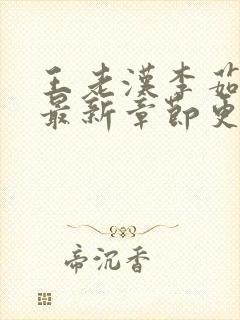 王老汉李茹
最新章节更
帝沉香